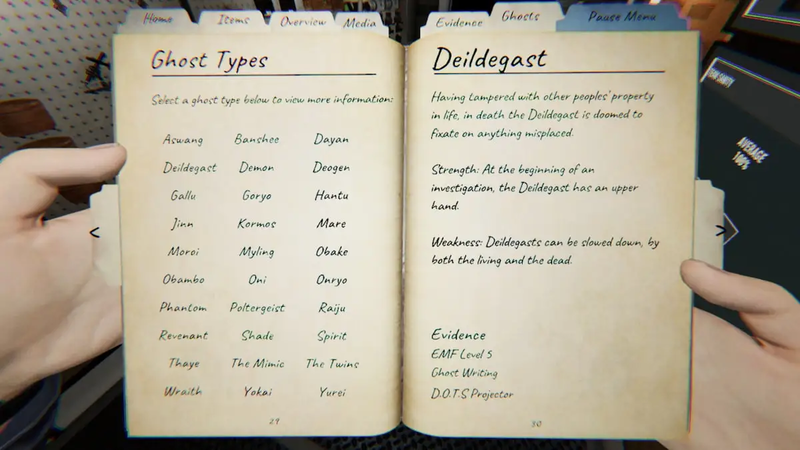 Home Items Overview Media
Evidence Ghosts Pause Menu
Ghost Types
Select a ghost type below to view more information:
Aswang Banshee Dayan
Deildegast Demon Deogen
Gallu Goryo Hantu
Jinn Kormos Mare
Moroi Myling Obake
Obambo Oni Onryo
Phantom Poltergeist Raiju
Revenant Shade Spirit
Thaye The Mimic The Twins
Wraith Yokai Yurei
29
<
Deildegast
Having tampered with other peoples' property
in life, in death the Deildegast is doomed to
fixate on anything misplaced.
Strength: At the beginning of an
investigation, the Deildegast has an upper
hand.
Weakness: Deildegasts can be slowed down, by
both the living and the dead.
Evidence
EMF Level 5
Ghost Writing
D.O.T.S Projector
30
>
AVERAGE
100%